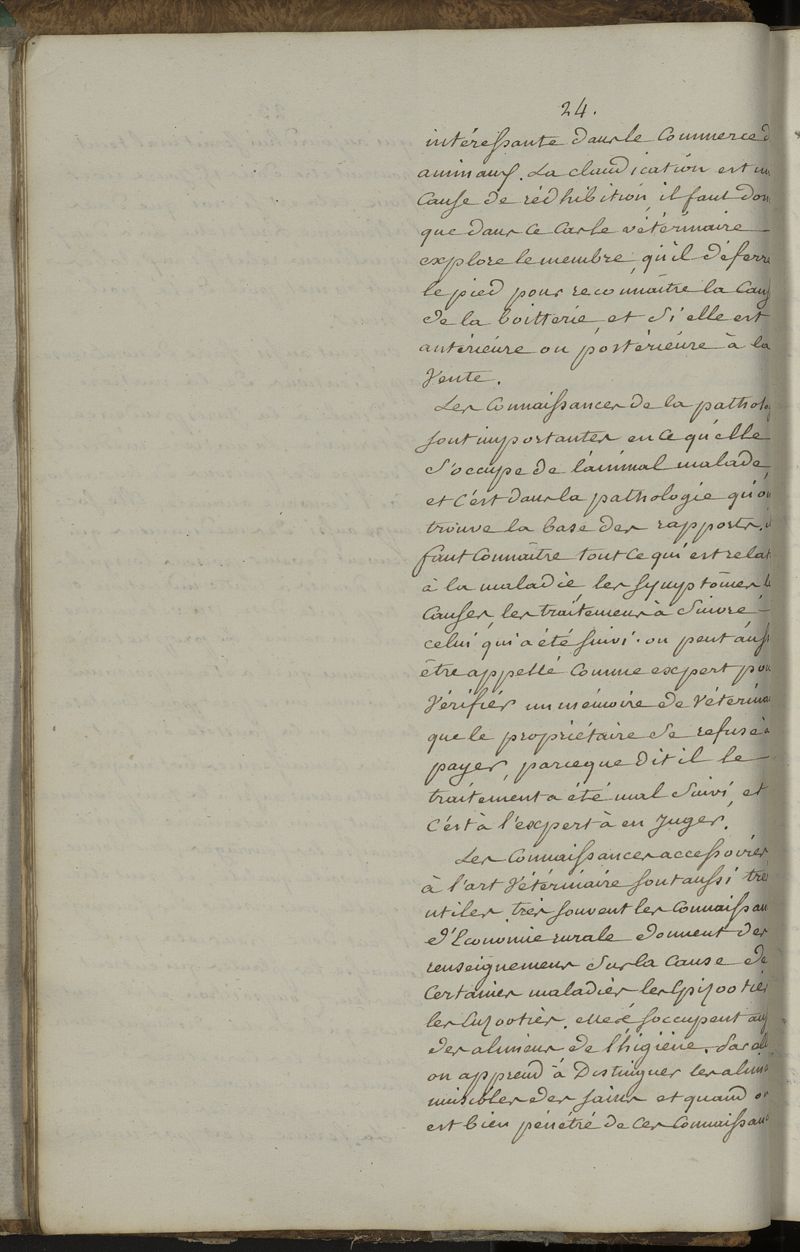 24.
intéressante dans le Commerce d
animaux. La claudication est un
Cause de rédhibition, il faut don
que dans ce cas le vétérinaire
explore le membre, qu'il déferre
le pied pour reconnaître la Caus
de la boitterie, et si elle est
antérieure ou postérieure à la
Vente.
Les Connaissances de la pathol
sont importantes en ce qu'elle
s'occupe de l'animal malade,
et c'est dans la pathologie qu'on
trouve la base des rapports, il
faut Connaître tout ce qui est relat
à la maladie, les symptômes l
Causes, les traitemens à suivre
celui qui a été suivi. on peut auss
être appellé Comme expert pou
Vérifier un mémoire de Vétérina
que le propriétaire se refuse à
payer, parceque dit il le
traitement a été mal suivi, et
c'est à l'expert à en Juger.
Les Connaissances accessoires
à l'art Vétérinaire sont aussi très
utiles, très souvent les Connaissan
d'Economie rurale donnent des
renseignemens sur la Cause de
Certaines maladies les Epizooties
les Enzooties, elles s'occupent aus
des alimens de l'higiène. Par
on apprend à Distinguer les alim
nuisibles des sains et quand on
est bien pénétré de ces Connaissan